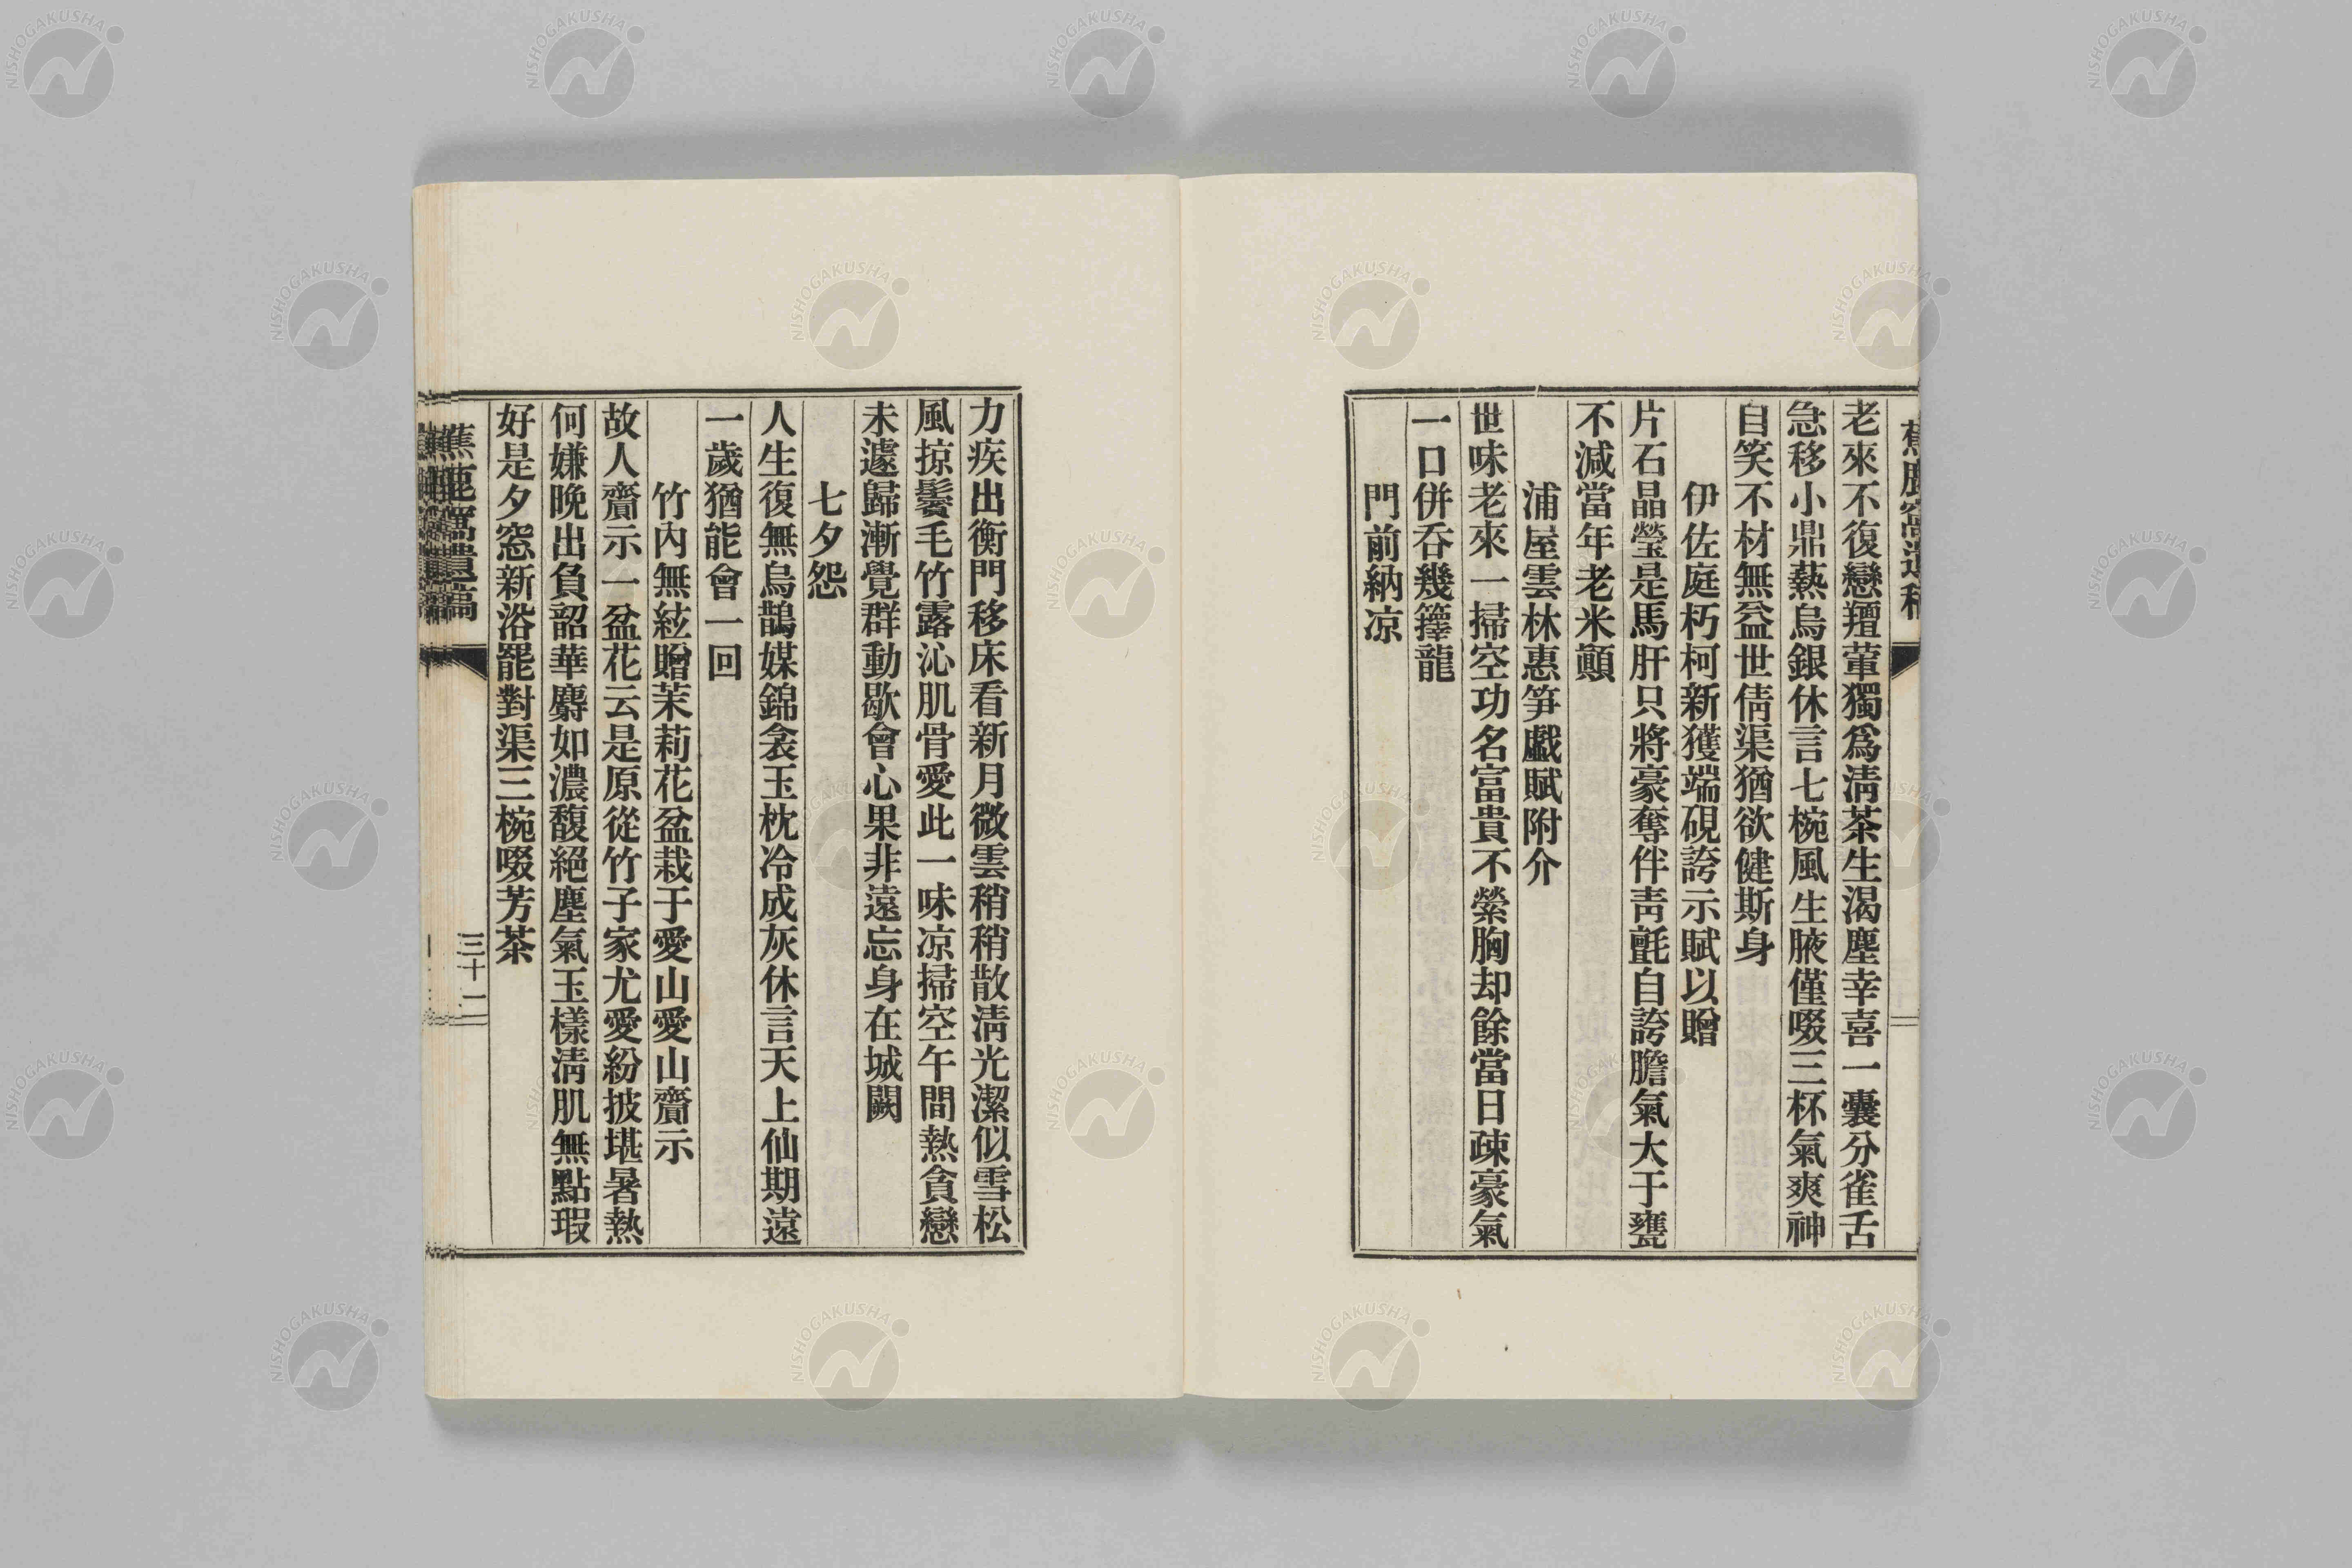 老來不復戀羶葷獨爲淸茶生渴塵幸喜一囊分雀舌
急移小鼎爇烏銀休言七椀風生腋僅啜三杯氣爽神
自笑不材無益世倩渠猶欲健斯身
伊佐庭朽柯新獲端硯誇示賦以贈
片石晶瑩是馬肝只將豪奪伴靑氈自誇膽氣大于甕
不減當年老米顚
浦屋雲林惠笋戲賦附介
世味老來一掃空功名富貴不縈胸却餘當日疎豪氣
一口併呑幾籜龍
門前納凉
力疾出衡門移床看新月微雲稍稍散淸光潔似雪松
風掠鬢毛竹露沁肌骨愛此一味凉掃空午間熱貪戀
未遽歸漸覺群動歇會心果非遠忘身在城闕
七夕怨
人生復無烏鵲媒錦衾玉枕冷成灰休言天上仙期遠
一歲猶能會一回
竹內無絃贈茉莉花盆栽于愛山愛山齎示
故人齎示一盆花云是原從竹子家尤愛紛披堪暑熱
何嫌晩出負韶華麝如濃馥絕塵氣玉樣淸肌無點瑕
好是夕窓新浴罷對渠三椀啜芳茶
蕉鹿窩遺稿
三十二
NISHOGAKUSHA